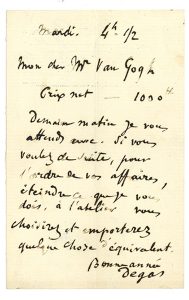 Mardi. 4h 1/2
Mon cher Mr Van Gogh
Prix net — 1000 f
Demain matin je vous
attends avec. Si vous
voulez de suite, pour
l'ordre de vos affaires,
éteindre ce que je vous
dois, à l'atelier vous
choisirez et emporterez
quelque chose d'équivalent.
Bonne année
Degas